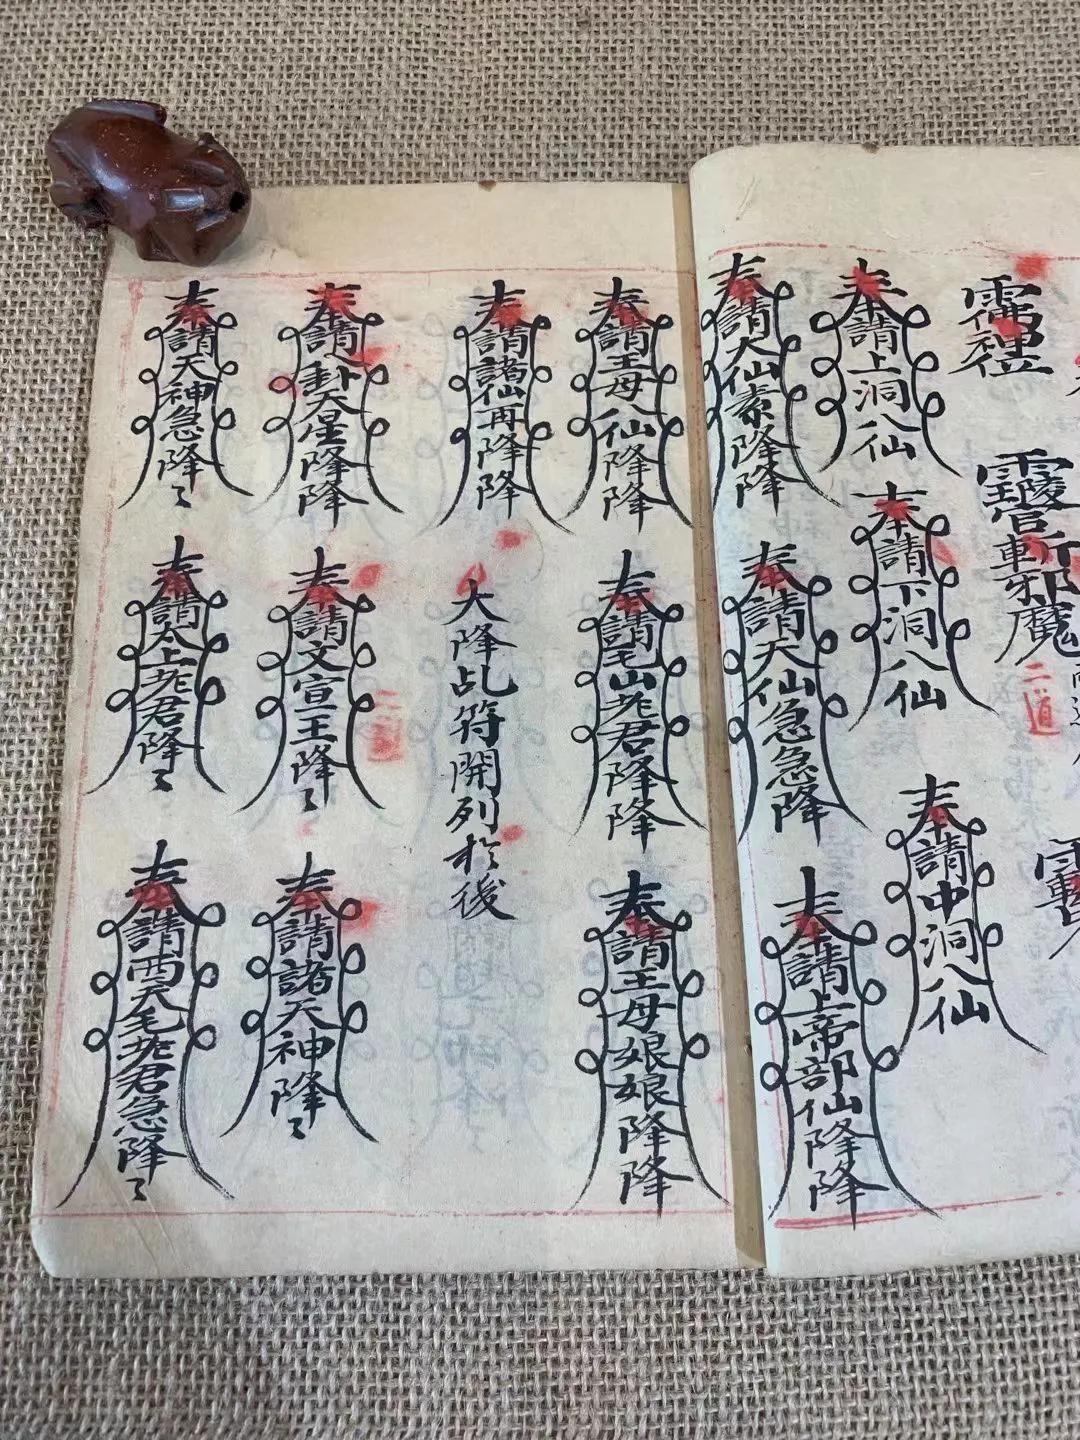 奉請上洞八仙
奉請下洞八仙
奉請中洞八仙
奉請大仙素降降
奉請天仙急急降
奉請上帝部仙降降
二道
奉請王母八仙降降
奉請毛山老君降降
奉請王母娘娘降降
奉請諸仙再降降
大降乩符開列於後
奉請八卦天星降降
奉請文宣王降〻
奉請諸天神降〻
二道
奉請天神急降〻
奉請太上老君降〻
奉請西天毛老君急降〻